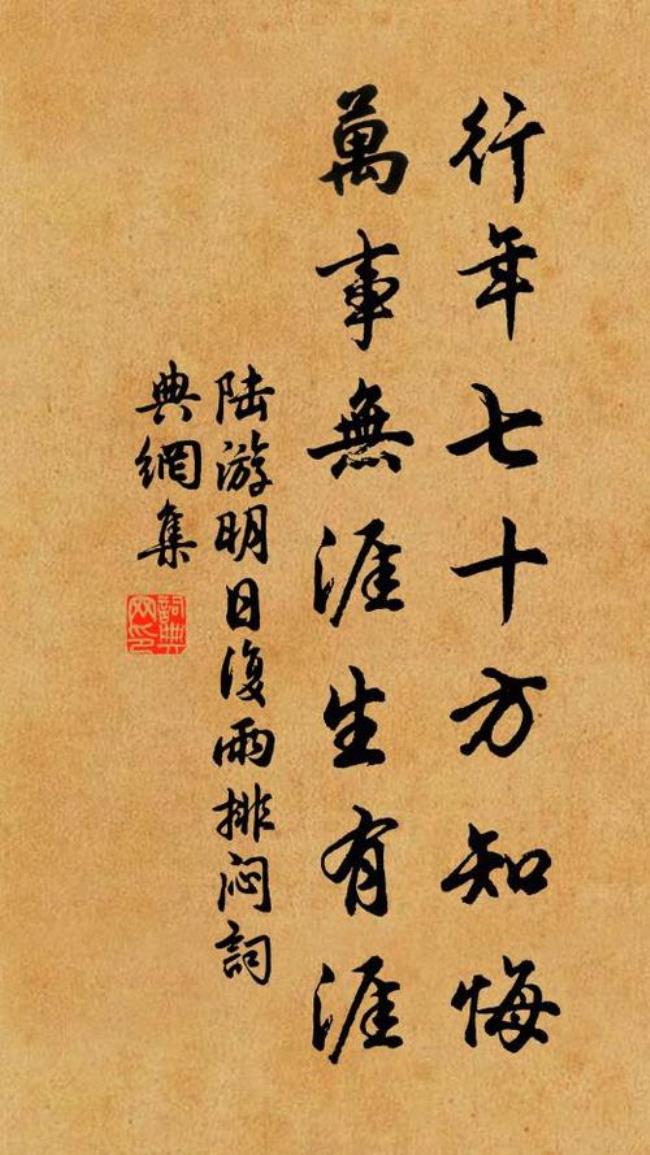 行年七十方知悔
萬事無涯生有涯
陆游明日復雨排闷詞
典網集
詞典
网印